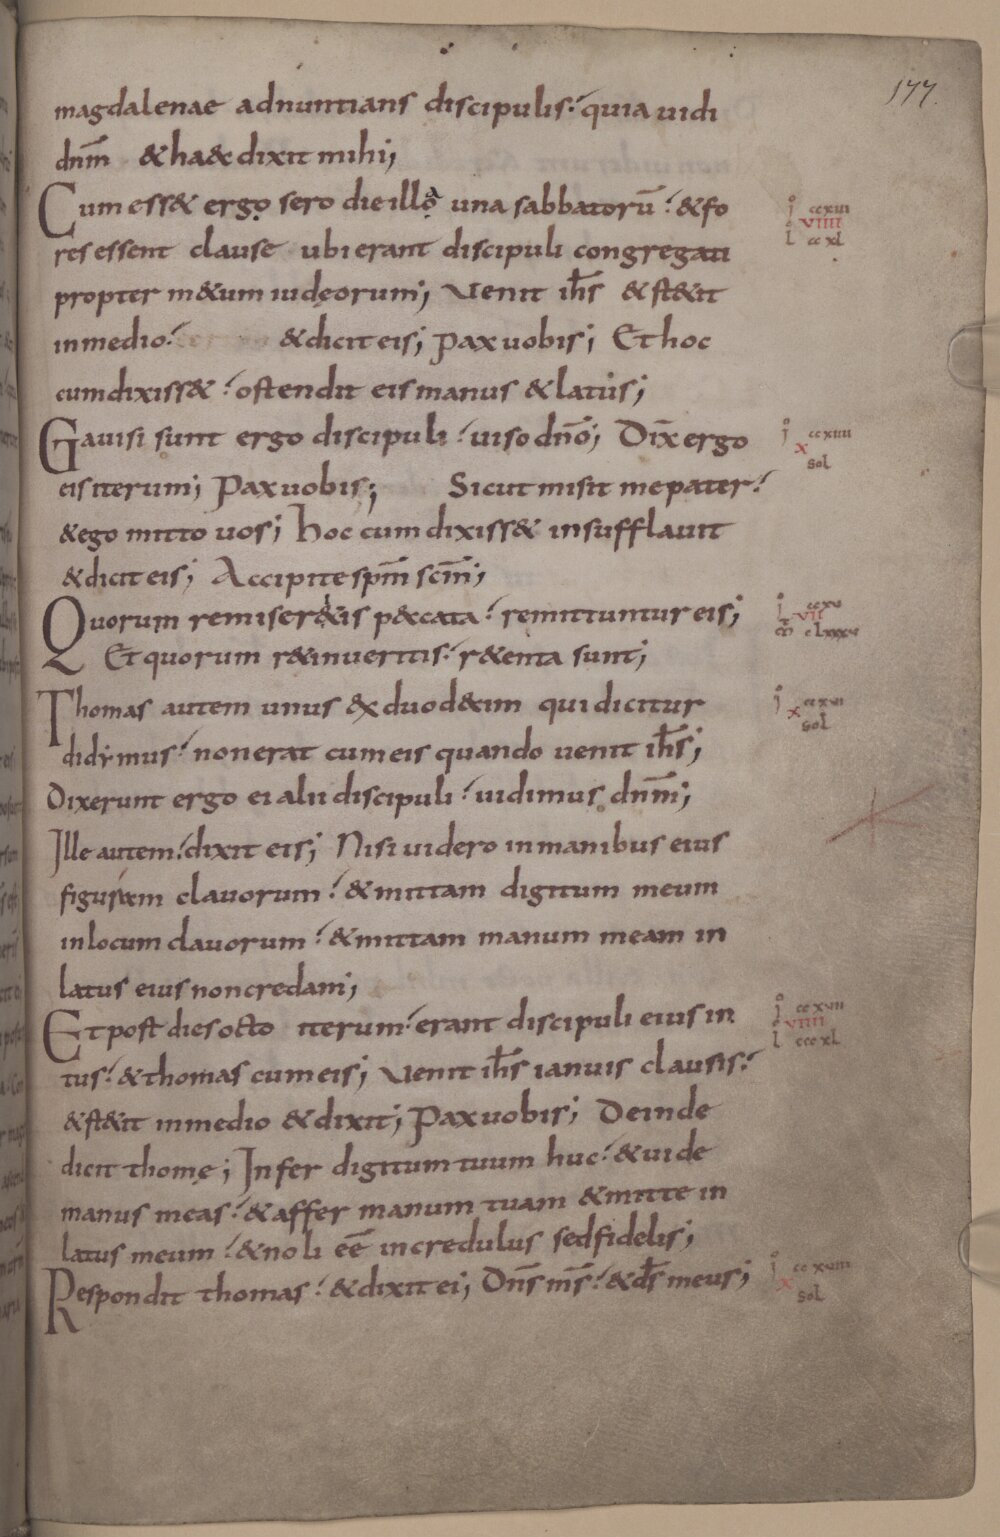 177.
magdalenae adnuntians discipulis:́ quia uidi
dnm̄ & ha& dixit mihi;
Cum ess& ergo sero die illo una sabbatorū:́ & fo
res essent clause ubi erant discipuli congregati
propter m&um iudęorum; Uenit ih̄s & st&it
in medio:́ & dicit eis; Pax uobis; Et hoc
cum dixiss&:́ ostendit eis manus & latus;
Gauisi sunt ergo discipuli:́ uiso dn̄o; Dix̄ ergo
eis iterum; Pax uobis; Sicut misit me pater:́
& ego mitto uos; hoc cum dixiss& insufflauit
& dicit eis; Accipite spm̄ scm̄;
Quorum remiser&is p&cata:́ remittuntur eis;
Et quorum r&inueritis:́ r&enta sunt;
Thomas autem unus &x duod&im qui dicitur
didimus:́ non erat cum eis quando uenit ih̄s;
Dixerunt ergo ei alii discipuli:́ uidimus dnm̄;
Ille autem:́ dixit eis; Nisi uidero in manibus eius
figuram clauorum:́ & mittam digitum meum
in locum clauorum:́ & mittam manum meam in
latus eius non credam;
Et post dies octo iterum:́ erant discipuli eius in
tus:́ & thomas cum eis; Uenit ih̄s ianuis clausis:́
& st&it in medio & dixit; Pax uobis; Deinde
dicit thomę; Infer digitum tuum huc:́ & uide
manus meas:́ & affer manum tuam & mitte in
latus meum:́ & noli eē incredulus sed fidelis;
Respondit thomas:́ & dixit ei; Dn̄s ms̄:́ & ds̄ meus;
i ccxiii
VIIII
l ccxl
i ccxiiii
x
sol
i ccxv
VII
m̄ clxxxv
i ccxvi
x
sol
i ccxvii
VIIII
l cccxl
i ccxviii
x
sol